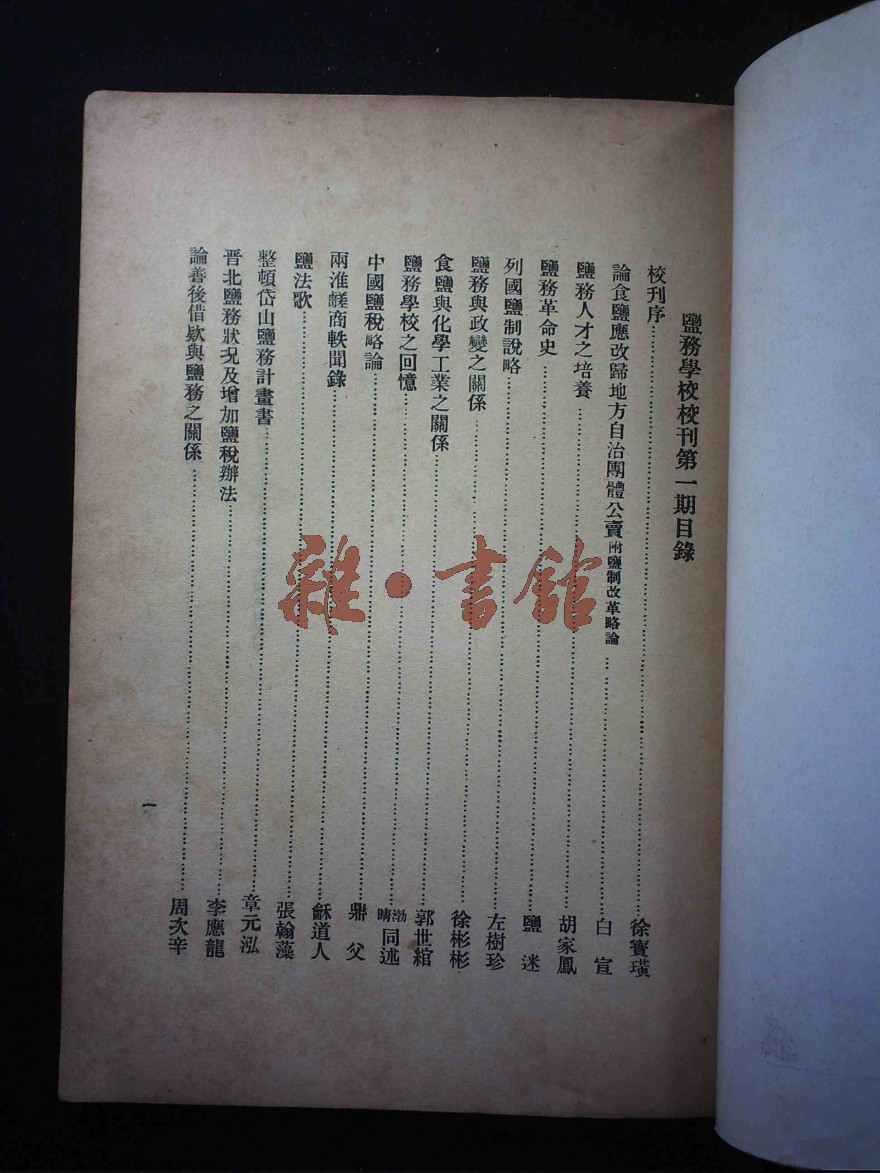 鹽務學校校刊第一期目錄
校刊序……徐寶璜
論食鹽應改歸地方自治團體公賣附鹽制改革略論……白宣
鹽務人才之培養……胡家鳳
鹽務革命史……鹽迷
列國鹽制說略……左樹珍
鹽務與政變之關係……徐彬彬
食鹽與化學工業之關係……郭世綰
鹽務學校之回憶……渤晴同述
中國鹽稅略論……鼎父
兩淮鹺商軼聞錄……龢道人
鹽法歌……張翰藻
整頓岱山鹽務計畫書……章元泓
晋北鹽務狀況及增加鹽稅辦法……李應龍
論善後借欵與鹽務之關係……周次辛
一
雜·書館